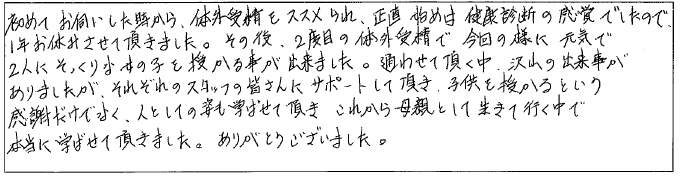 初めてお伺いした時から、体外受精をススメられ、正直始めは健康診断の感覚でしたので、
1年お休みさせて頂きました。その後、2度目の体外受精で今回の様に元気で
2人にそっくりな女の子を授かる事が出来ました。通わせて頂く中、沢山の出来事が
ありましたが、それぞれのスタッフの皆さんにサポートして頂き、子供を授かるという
感謝だけでなく、人としての姿も学ばせて頂き これから母親として生きて行く中で
本当に学ばせて頂きました。ありがとうございました。